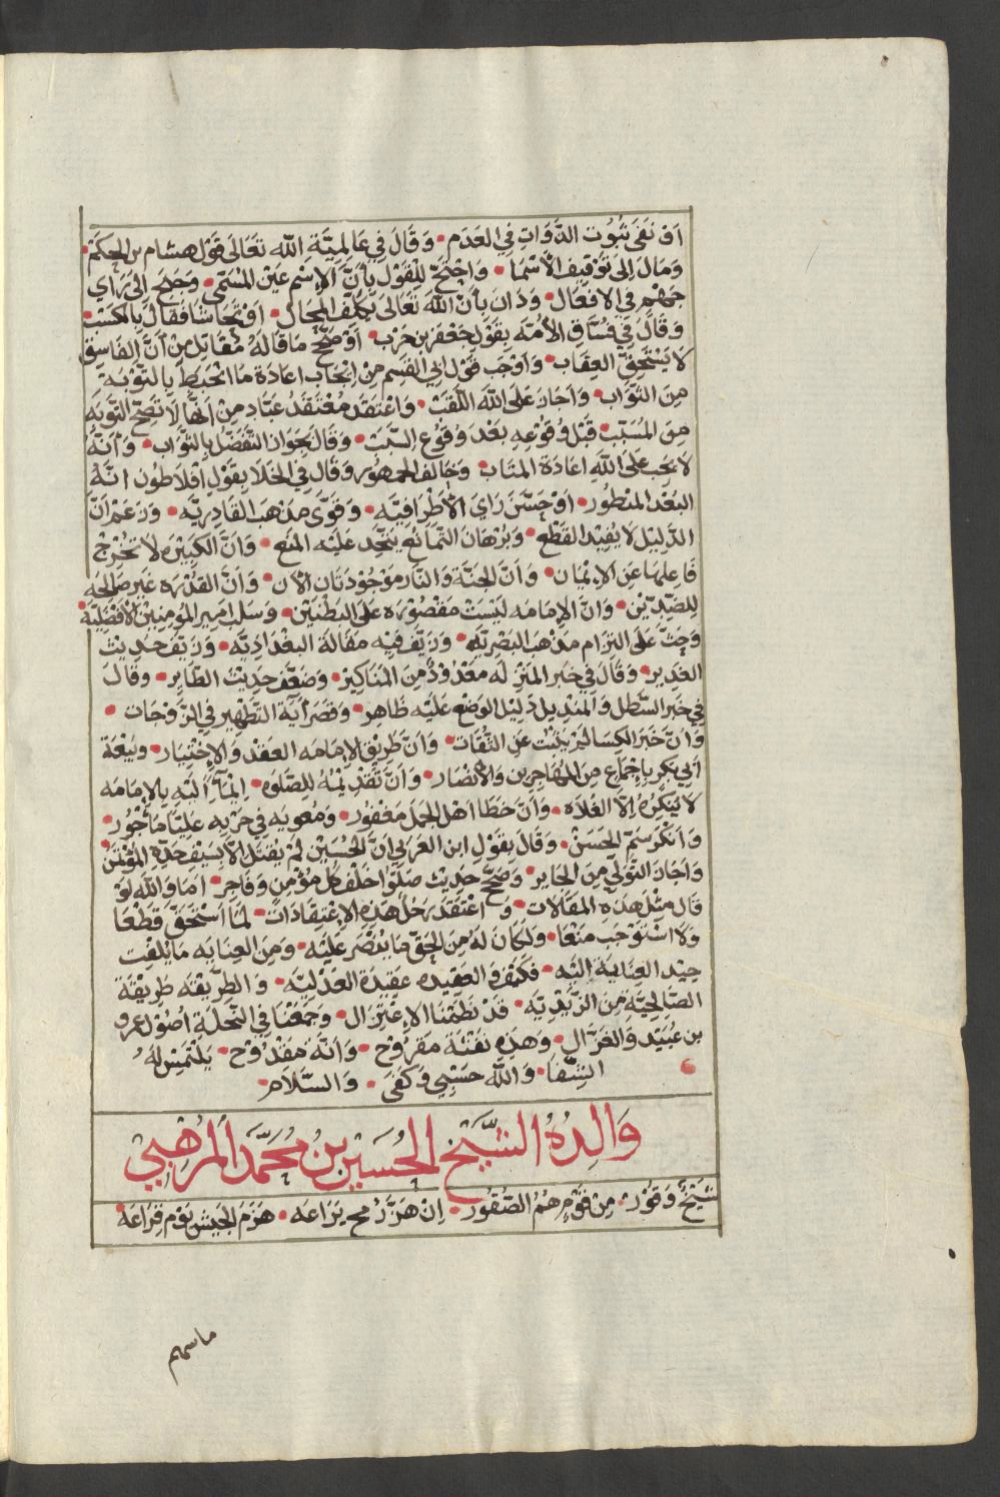 اَوْ نَفَى ثُبُوت الذَّوَاتِ فِي العَدَم • وَقَالَ فِي عَالِمِيَّةِ اللّٰه تَعَالَى قَوْل هشام بن الحكم •
وَمَال إلى تَوْقِيف الأَسْمَا • وَاحْتَجَّ لِلْقَوْل بأَنَّ الاِسْم عَيْن المُسَمَّى • وَجَنَحَ إلى رَاي
جهْم في الافعَال • وَدَان بأَنَّ اللّٰهَ تَعَالى يُكَلِّف المُحَال • اَوْ تَحَاشَا فقَالَ بِالكَسْب
وَقَالَ فِي فُسَّاق الأُمَّه بقَوْل جَعْفَر بن حَرْب • اَوْ صَحَّحَ مَا قَالَهُ مُقَاتِل مِنْ أَنَّ الفَاسِق
لا يَسْتَحِقّ العِقَاب • وَأَوْجَب قَوْل ابي القسِم مِنْ اِيجَاب اعَادَة مَا انْحَبَطَ بِالتَّوْبَه
مِنَ الثَّوَاب • وَاَجَازَ عَلَى اللّٰه اللَّقَب • وَاعْتَقَدَ مُعْتَقَدَ عَبَّاد مِنْ اَنَّهَا لَا تَصِحّ التَّوبَه
مِنَ المُسَبَّب قَبْل وُقُوْعِهِ بَعْدَ وُقُوعِ السَّبَب • وَقَالَ بِجَوَاز التَّفَضُّل بِالثَّوَاب • وَأَنَّهُ
لا يَجب عَلَى اللّٰهِ اعَادَة المثَاب • وَخَالف الجمهُور وَقَال فِي الخَلَا بِقَوْل افْلَاطُون انَّهُ
البُعْد المنْطُور • اَوْ حَسَّنَ رَايَ الأَطْرَافِيَّه • وَقَوَّى مَذْهَبَ القَادِرِيَّه • وَزَعَمَ انَّ
الدَّلِيْل لَا يُفِيْد القَطْع • وَبُرْهَان التَّمَانُع يَتَّجِه عَلَيْه المنَع • وَاَنَّ الكَبِيْرَه لا تُخْرِجُ
فَاعِلهَا عَن الإِيْمَان • وَاَنَّ الجَنَّة وَالنَّار مَوْجُوْدَتَان الآن • وَاَنَّ القُدْرَه غَيْر صَالِحَه
لِلضِّدَّيْن • وَانَّ الإِمَامَه لَيْسَتْ مَقْصُوْرَه عَلَى البَطْنَيْن • وَسَلَبَ امِير المُؤمِنِيْن الأَفْضَلِيَّة
وَحَثَّ عَلى التِزَام مَذْهَب البَصْرِيَّه • وَزَيَّفَ فِيْه مَقَالَة البَغْدَادِيَّه • وَزَيَّفَ حَدِيْث
الغَدير • وَقَالَ فِي خَبَر المَنْزِلَه مَعْدُوْدٌ مِنَ المَنَاكِيْر • وَضَعَّفَ حَدِيْثَ الطَّايِر • وَقَالَ
فِي خَبَر السَّطل وَالمنْدِيل دَلِيْل الوَضْع عَلَيْه ظَاهِر • وَقَصَرَ آيَة التَّطْهِير فِي الزَّوْجَات •
وَأَنَّ خَبَرَ الكِسَا لَمْ يَثْبُتْ عَن الثِّقَات • وَاَنَّ طَرِيْق الإِمَامَه العَقْد وَالإخْتِيَار • وَبَيْعَة
أَبِي بَكر بإِجْمَاع مِنَ المُهَاجِرِين وَالأَنْصَار • وَاَنَّ تَقْدِيْمُهُ لِلصَّلَوه • اِيْمَآءٌ إلَيْه بِالإِمَامَه
لا يُنكِرهُ اِلَّا الغلَاه • وَأَنَّ خَطَا اَهْل الجَمَل مَغْفُور • وَمُعويَه فِي حَرْبه عَلِيًّا مَأْجُوْر •
وَاَنكَرَ سَمّ الحَسَنْ • وَقَالَ بِقَوْلِ ابن العَرَبي إِنَّ الحُسَيْن لَمْ يُقْتَل إلَّا بِسَيْف جَدِّهِ المؤْتَمَن
وَاَجَازَ التَّوَلِّي مِنَ الجَاير • وَصَحَّحَ حَدِيْث صَلّوا خَلْف كُلّ مُؤْمِنٍ وَفَاجِر • اَمَا وَاللّٰه لَوْ
قَالَ مِثْلَ هَذِه المقَالَات • وَاعْتَقَدَ رَجُل هَذِهِ الإِعْتِقَادَاتْ • لَمَا اسْتَحَقَّ قَطْعَا
وَلا اسْتَوْجَبَ مَنْعَا • وَلَكَانَ لَهُ مِنَ الحَقّ مَا يَقْصُر عَلَيْه • وَمِنَ العِنَايَه مَا يُلْفِت
جِيْد العِنَايَة اِلَيْه • فَكَيْفَ وَالعَقِيْده عَقِيْدَة العَدْلِيَّه • وَالطَّرِيْقَه طَرِيْقَة
الصَّالِحِيَّهِ مِنَ الزَّيْدِيَّه • قَدْ نَظَمَنَا الإِعْتِزَال • وَجَمَعْنَا فِي النِّحلَة أُصُوْل عَمرو
بن عُبَيْد وَالغَزَّال • وَهَذِه نَفْثَة مَقْرُوْح • وَاَنَّه مَقْدُوْح • يَلْتَمِسْ لَهُ
الشِّفَا • وَاللّٰه حَسْبِي وَكَفَى • وَالسَّلَام •
وَالِدُهُ الشَّيْخ الحُسَيْن بنُ مُحَمَّد المُرْهِبيْ
شَيْخٌ وَقُوْر • مِنْ قَوْمٍ هُمُ الصُّقُوْر • اِنْ هَزَّ رُمح يَرَاعَه • هَزَم الجَيش يَوْم قِرَاعَه •